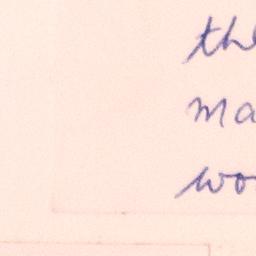 the
ma
wo